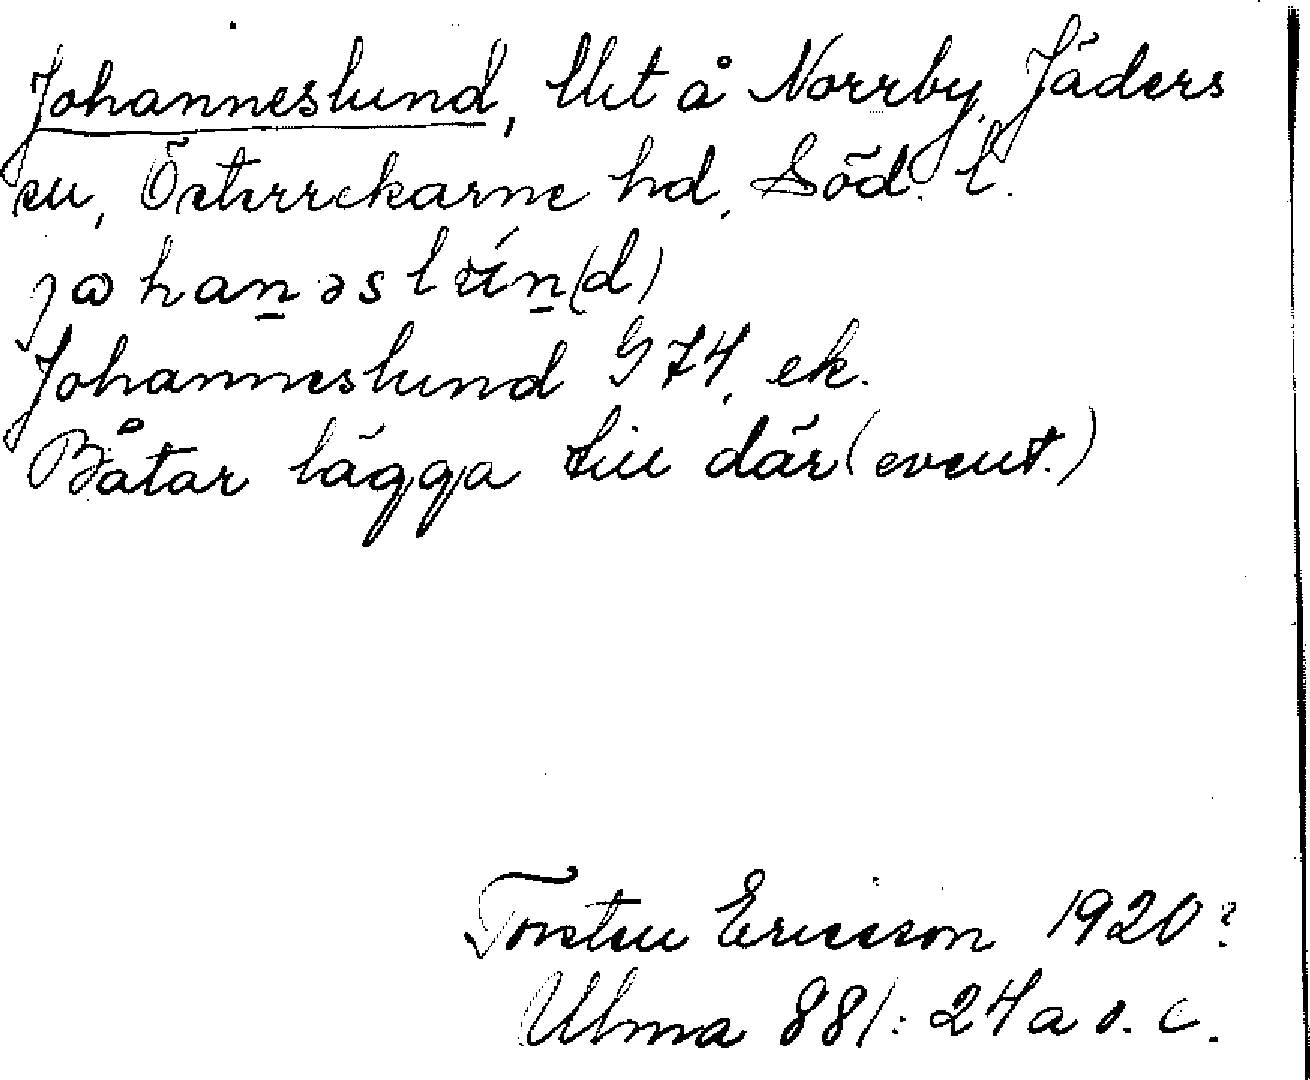 Johanneslund, Utt å Norrby, Jäders
sn, Österrekarne hd, Söd. l.
Johanneslund G 74, ek.
Båtar lägga till där (event.)
Torsten Ericsson 1920?
Ulma 881: 24 a o. c.